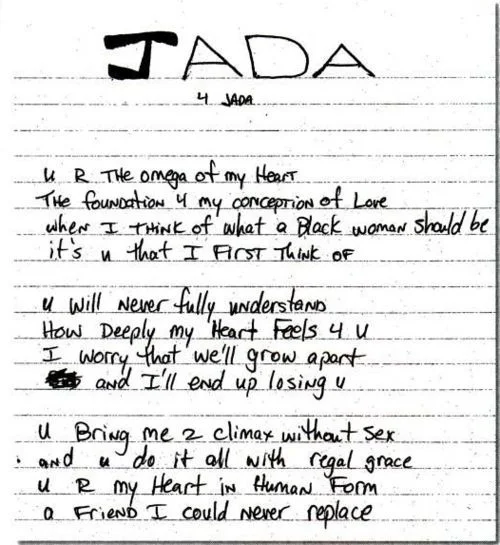 JADA
4 JADA
u R THe omega of my HearT
THe foundation 4 my conception of Love
when I THiNK of what a Black woman should be
it's u that I FirST THiNK oF
u will Never fully understand
How Deeply my Heart Feels 4 u
I worry that we'll grow apart
and I'll end up losing u
u Bring me 2 climax without sex
and u do it all with regal grace
u R my Heart in Human Form
a FrienD I could Never replace